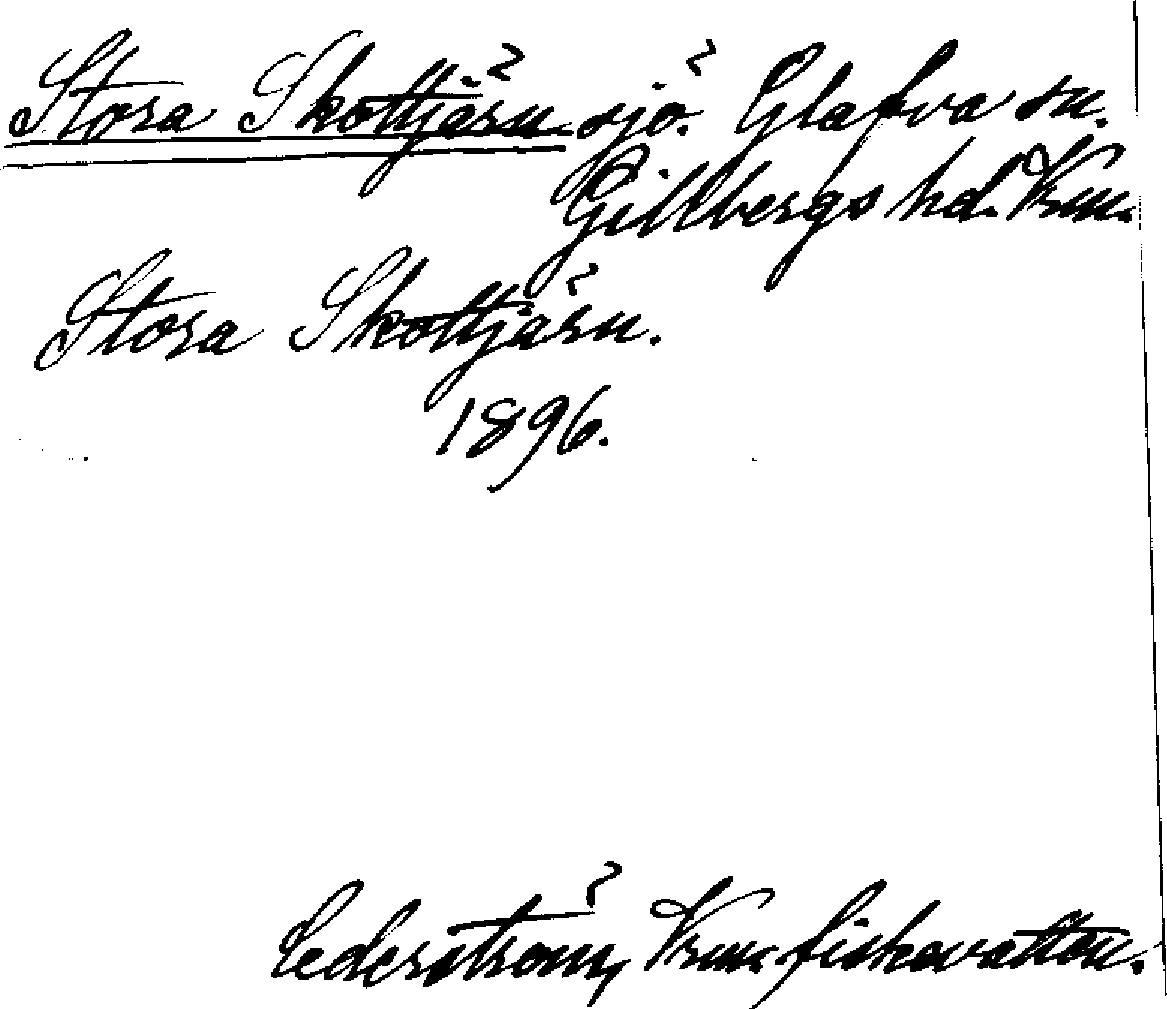 Stora Skottjärn sjö. Glafva sn.
Gillbergs hd. Vrm.
Stora Skottjärn.
1896.
Cederström, Vrm. fiskevatten.